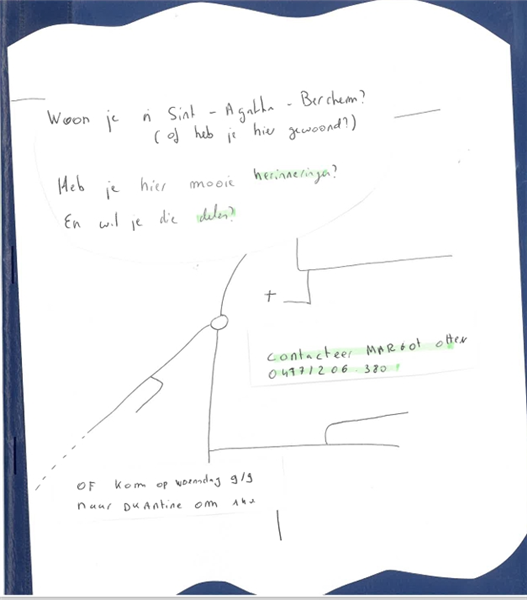 Woon je in Sint - Agatha - Berchem?
(of heb je hier gewoond?)
Heb je hier mooie herinneringen?
En wil je die delen?
+
contacteer MARGot otten
0497/206.380!
OF kom op woensdag 9/9
naar DKAntine om 14u